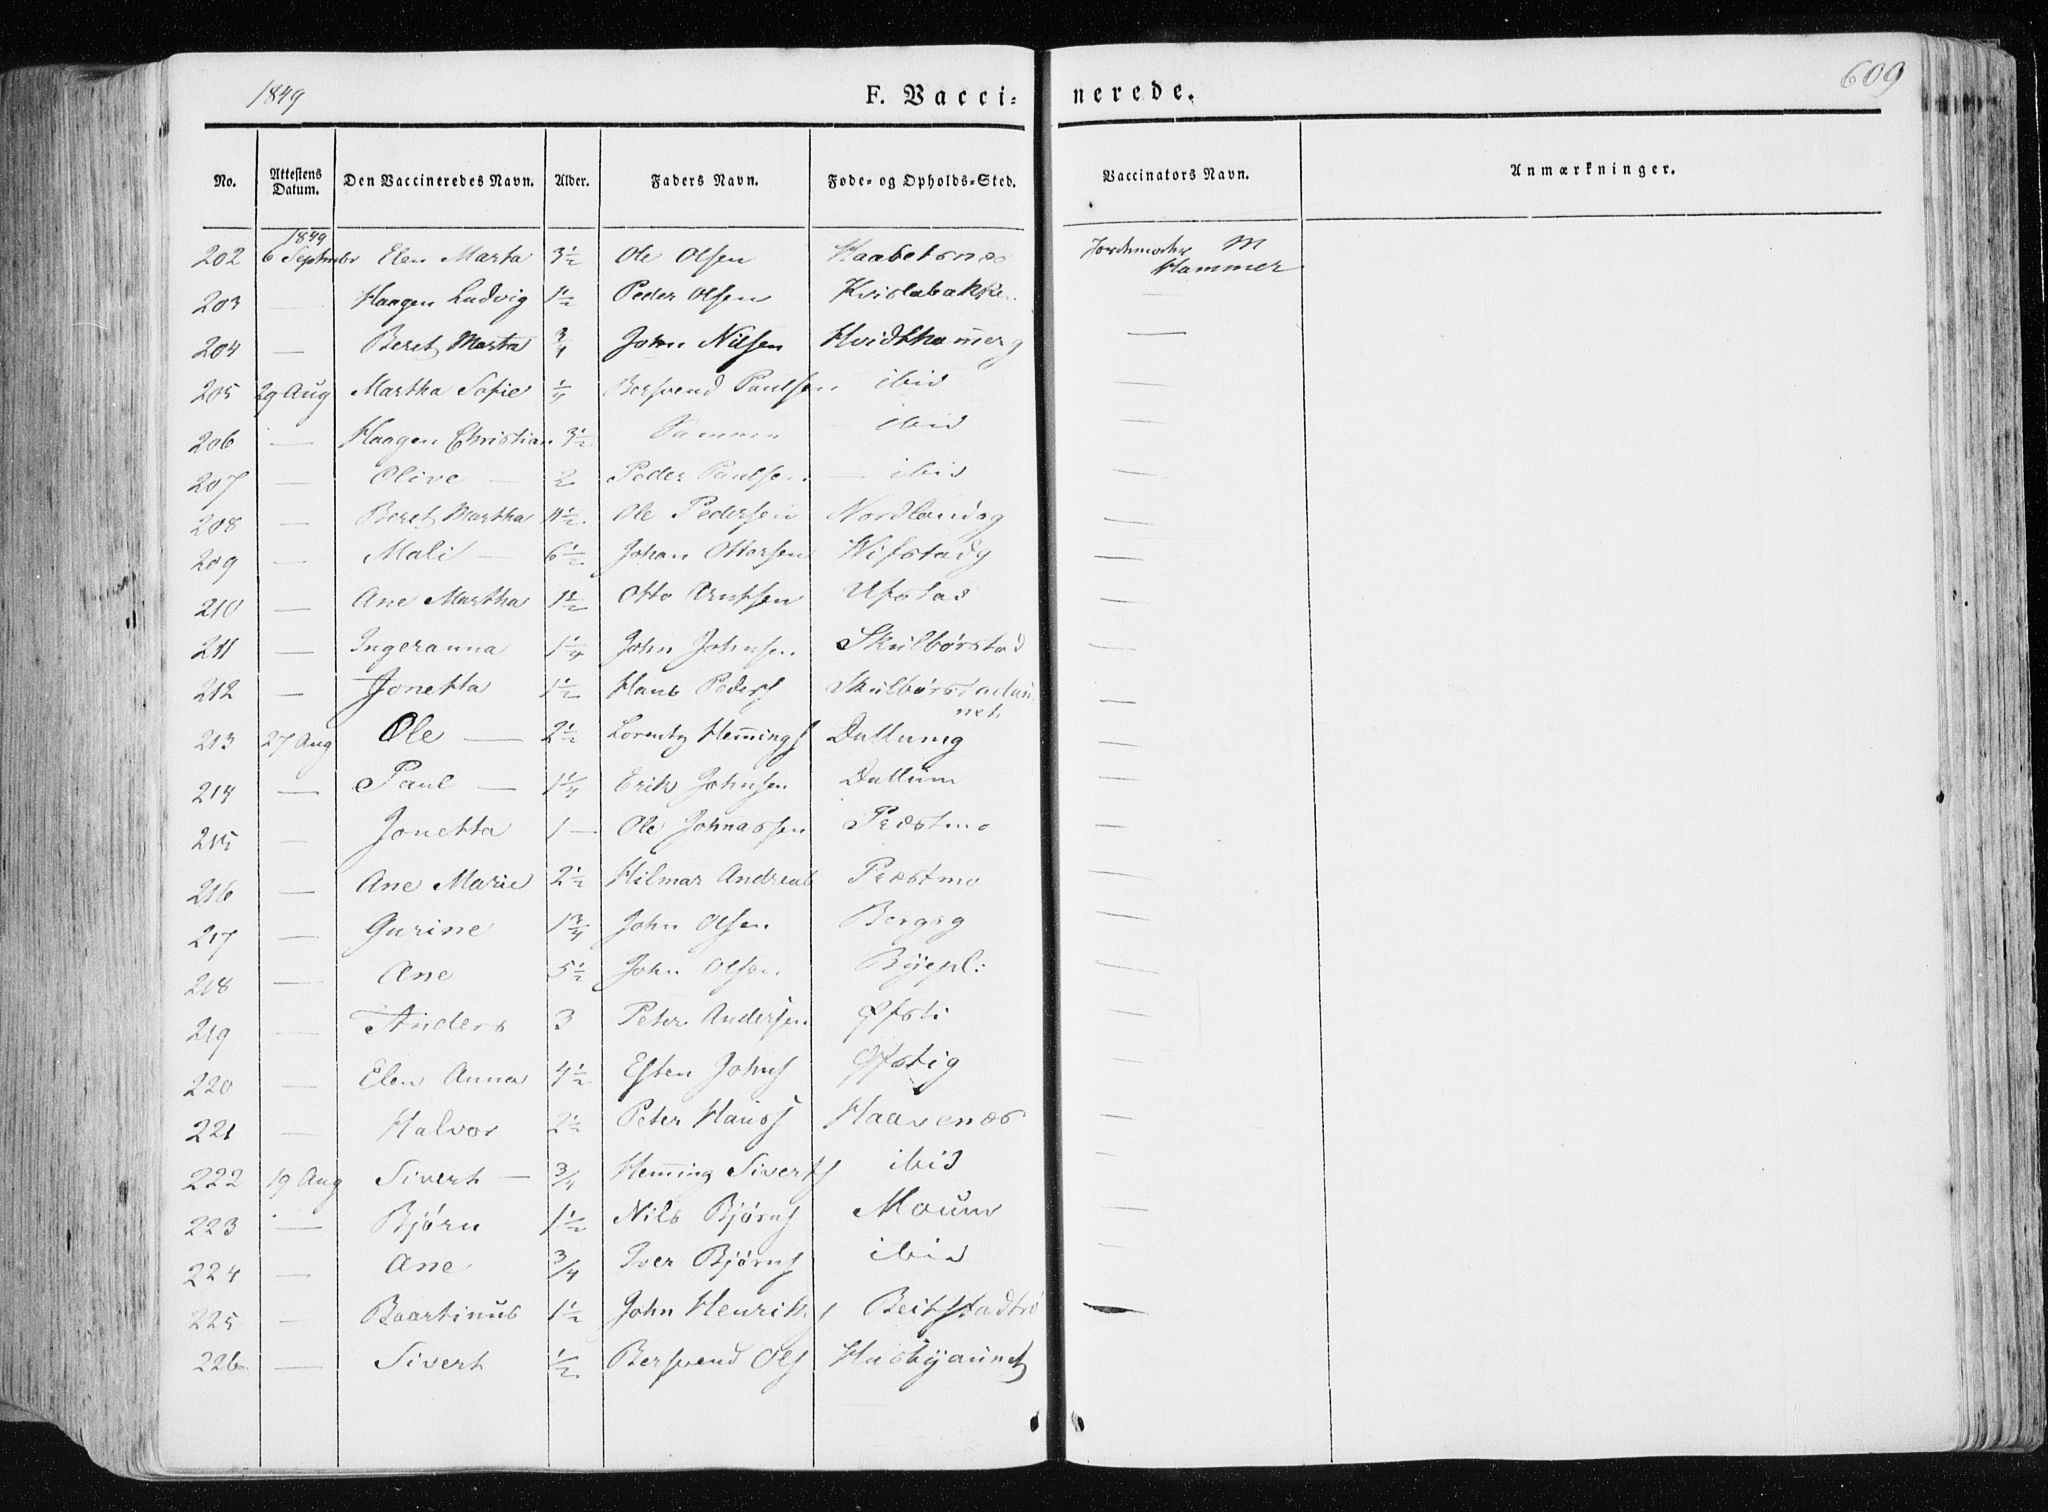 1849 F. Vacci- nerede. 609
No. Attestens Datum. Den Vaccineredes Navn. Alder. Faders Navn. Føde- og Opholds-Sted. Vaccinators Navn. Anmærkninger.
1849
202 6 September Elen Marta 3½ Ole Olsen Haabetsnæs Jordemoder M Hammer
203 — Haagen Ludvig 1½ Peder Olsen Kvislabakke —
204 — Beret Marta ¾ John Nilsen Hvidthamerg —
205 29 Aug Martha Sofie ¼ Bersvend Paulsen ibid —
206 — Haagen Christian 3½ Samme — ibid —
207 — Olive — 2 Peder Paulsen — ibid —
208 — Beret Martha Ole Pedersen Nordlandsg —
209 — Mali — 6½ Johan Ottersen Vifstadg —
210 — Ane Martha 1½ Otto Arntsen Ufstad —
211 — Ingeranna 1¼ John Johnsen Skulbørstad —
212 — Jonetta 1½ Hans Peders Skulbørstadaunet —
213 27 Aug Ole — 2½ Lorentz Hemings Dullumg —
214 — Paul — 1¼ Erik Johnsen Dullum —
215 — Jonetta 1 — Ole Johnassen Præstmo —
216 — Ane Marie 2½ Hilmar Andreas Præstmo —
217 — Gurine 1¾ John Olsen Bergsg —
218 — Ane 5½ John Olsen Byepl: —
219 — Anders 3 Peter Andersen Øfsti —
220 — Elen Anna 4½ Esten Johns Øfstig —
221 — Halvor 2½ Peter Hans Haavenæs —
222 19 Aug Sivert — ¾ Heming Siverts ibid —
223 — Bjørn 1½ Nils Bjørns Moum —
224 — Ane ¾ Iver Bjørns ibid —
225 — Baartinus 1½ John Henriks Beitstadtrø —
226 — Sivert ½ Bersvend Ols Husbyaunet